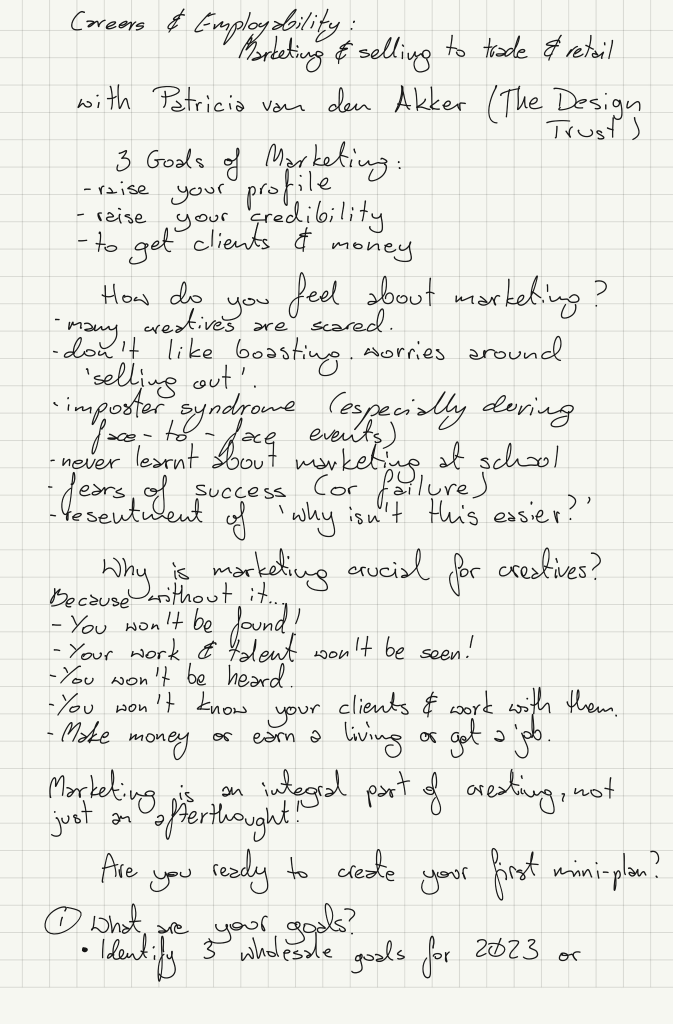 Careers & Employability:
Marketing & selling to trade & retail
with Patricia van den Akker (The Design
Trust)
3 Goals of Marketing:
- raise your profile
- raise your credibility
- to get clients & money
How do you feel about marketing?
- many creatives are scared.
- don't like boasting. worries around
'selling out'.
- imposter syndrome (especially during
face-to-face events)
- never learnt about marketing at school
- fears of success (or failure)
- resentment of 'why isn't this easier?'
Why is marketing crucial for creatives?
Because without it...
- You won't be found!
- Your work & talent won't be seen!
- You won't be heard.
- You won't know your clients & work with them.
- Make money or earn a living or get a job.
Marketing is an integral part of creating, not
just an afterthought!
Are you ready to create your first mini-plan?
① What are your goals?
• Identify 3 wholesale goals for 2023 or